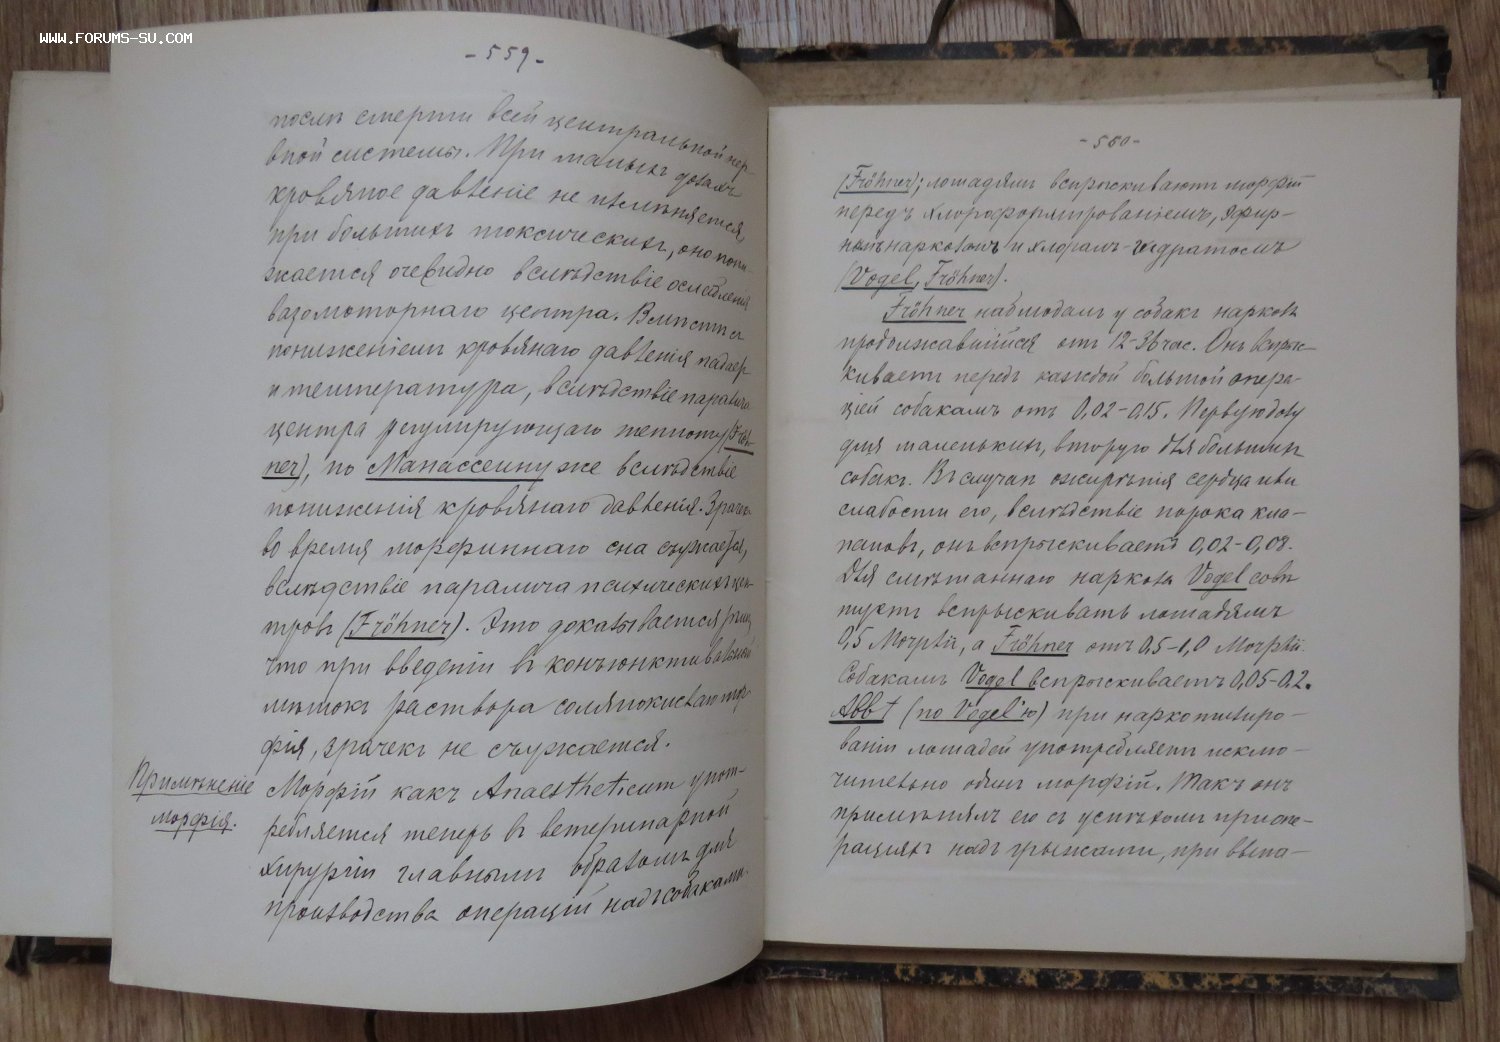 WWW.FORUMS-SU.COM
-559-
послѣ смерти всей центральной нер-
вной системы. При малыхъ дозахъ
кровяное давленіе не измѣняется,
при большихъ токсическихъ, оно пони-
жается очевидно вслѣдствіе ослабленія
вазомоторнаго центра. Вмѣстѣ съ
пониженіемъ кровянаго давленія падает
и температура, вслѣдствіе паралича
центра регулирующаго теплоту (Fröh-
ner), по Манассеину же вслѣдствіе
пониженія кровянаго давленія. Зрачек
во время морфиннаго сна съужается,
вслѣдствіе паралича психическихъ цен-
тровъ (Fröhner). Это доказывается
что при введеніи въ конъюнктивальный
мѣшокъ раствора солянокислаго мор-
фія, зрачекъ не съужается.
Примѣненіе
морфія.
Морфій какъ Anaestheticum упот-
ребляется теперь въ ветеринарной
хирургіи главнымъ образомъ для
производства операцій надъ собаками.
-560-
(Fröhner); лошадямъ вспрыскиваютъ морфій
передъ хлороформированіемъ, эфир-
нымъ наркозомъ и хлоралъ-гидратомъ
(Vogel, Fröhner).
Fröhner наблюдалъ у собакъ наркозъ
продолжавшійся отъ 12-36 час. Онъ вспрыс-
киваетъ передъ каждой большой опера-
ціей собакамъ отъ 0,02-0,15. Первую дозу
для маленькихъ, вторую для большихъ
собакъ. Въ случаѣ ожирѣнія сердца или
слабости его, вслѣдствіе порока кла-
пановъ, онъ вспрыскиваетъ 0,02-0,08.
Для смѣшаннаго наркоза Vogel совѣ
туетъ вспрыскивать лошадямъ
0,5 Morphii, а Fröhner отъ 0,5-1,0 Morphii.
Собакамъ Vogel вспрыскиваетъ 0,05-0,2.
Abbt (по Vogel'ю) при наркотизиро-
ваніи лошадей употребляетъ исклю-
чительно одинъ морфій. Такъ онъ
примѣнялъ его съ успѣхомъ при опе-
раціяхъ надъ грыжами, при выпа-